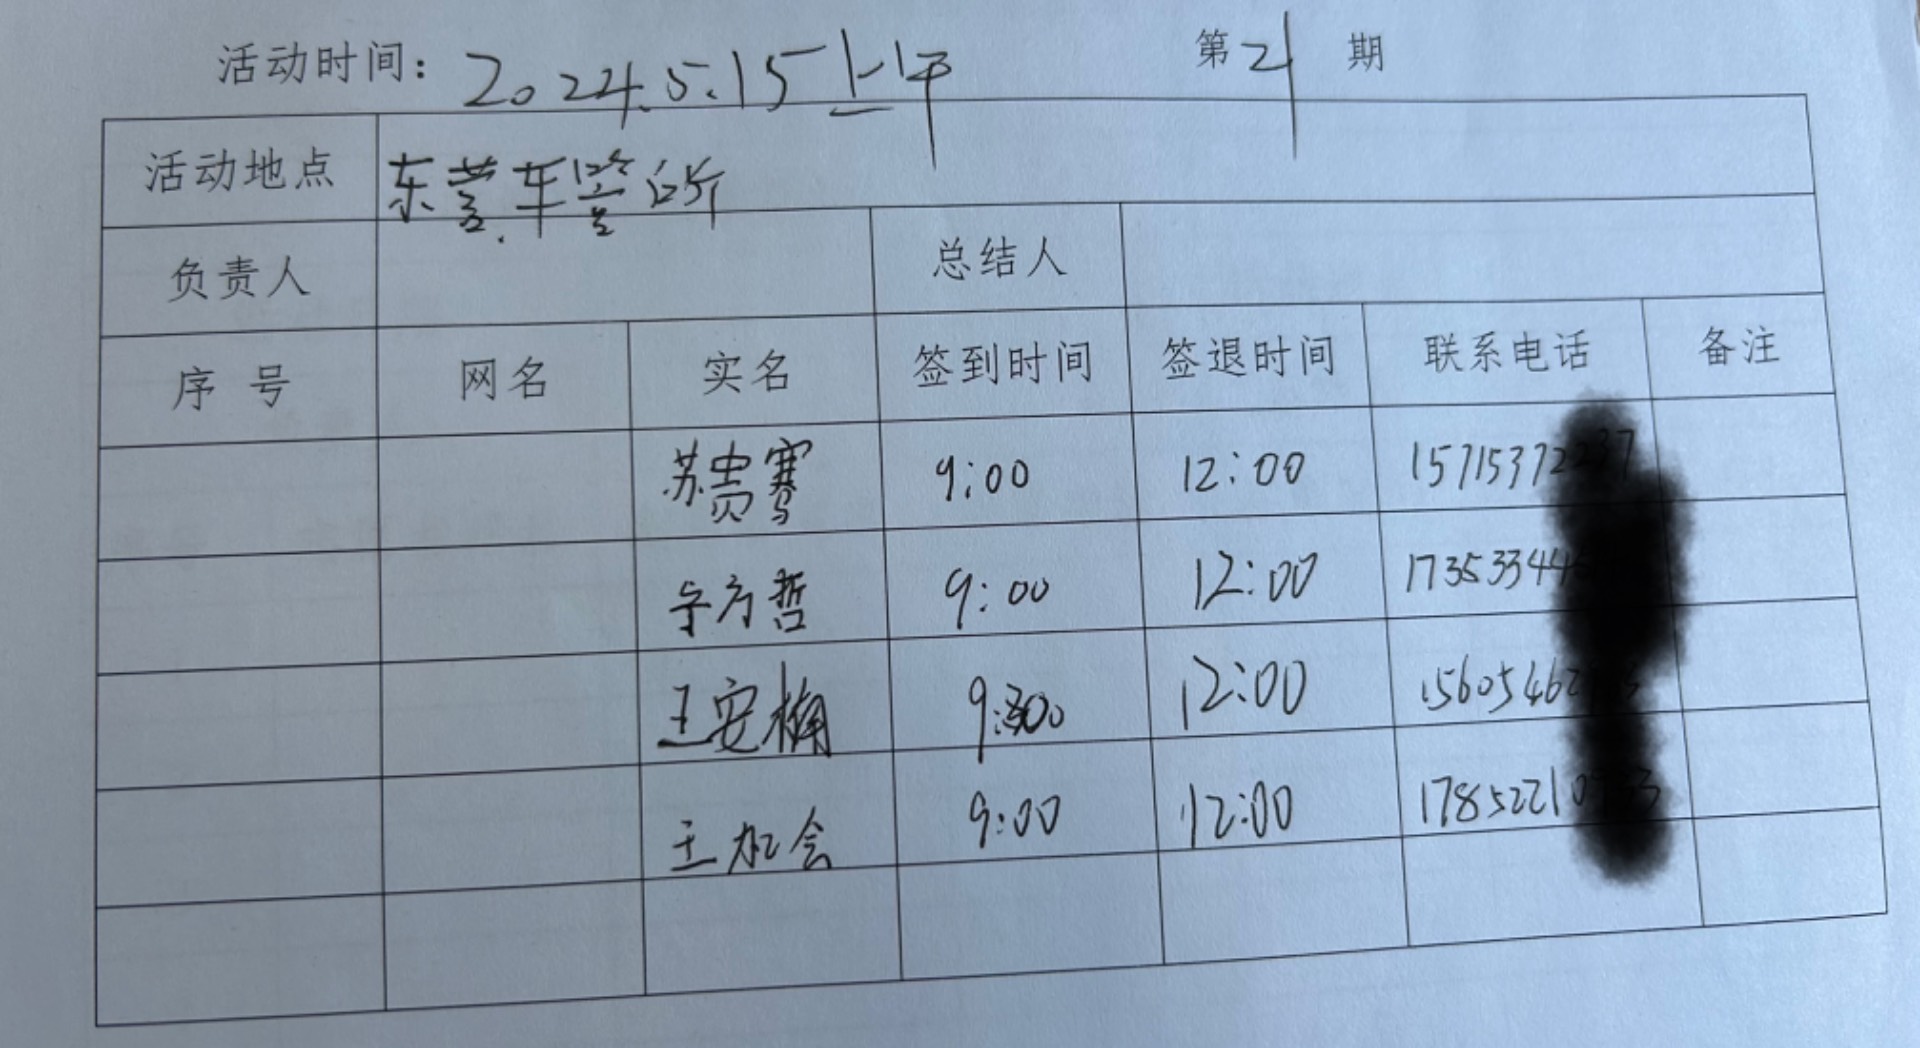 活动时间：2024.5.15上午 第21期
活动地点 东营车管所
负责人 总结人
序号 网名 实名 签到时间 签退时间 联系电话 备注
苏贵骞 9:00 12:00 15715372
方哲 9:00 12:00 17353344
王安楠 9:00 12:00 15605462
王会 9:00 12:00 17852210